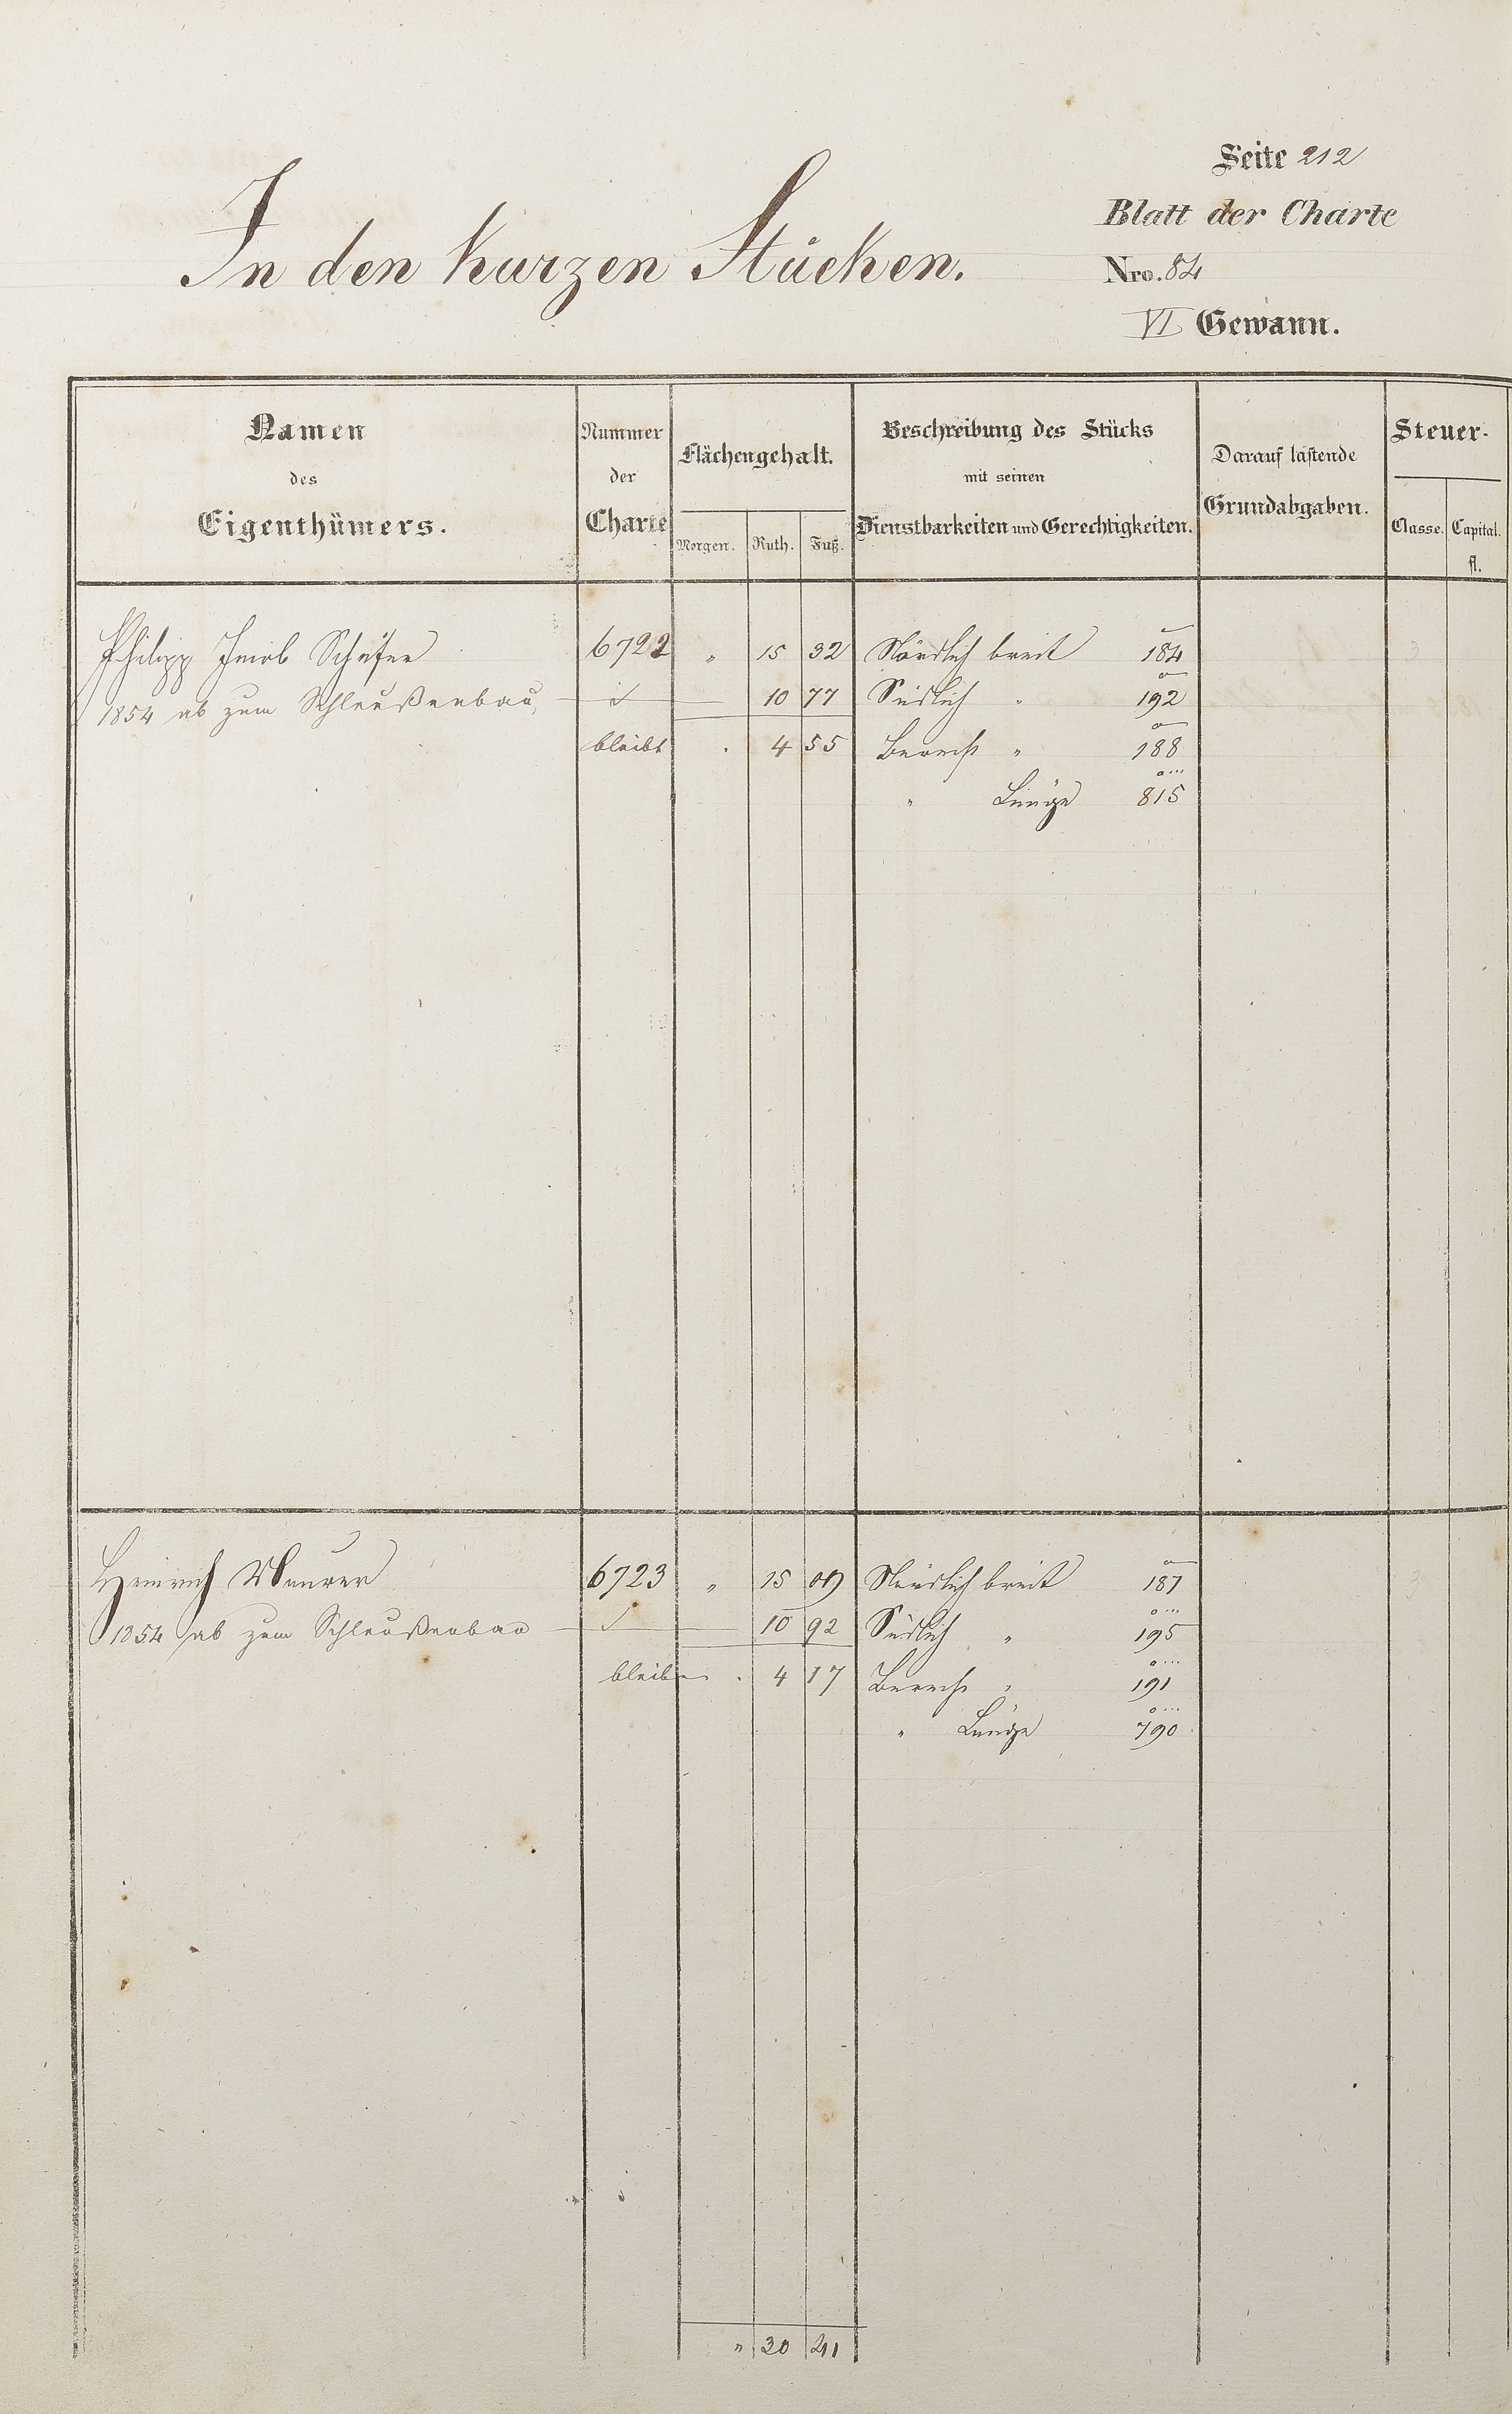 Seite 212
Blatt der Charte
In den kurzen Stücken.
Nro. 84
VI Gewann.
Namen des Eigenthümers.
Nummer der Charte
Flächengehalt.
Morgen. Ruth. Fuß.
Beschreibung des Stücks mit seinen Dienstbarkeiten und Gerechtigkeiten.
Darauf lastende Grundabgaben.
Steuer-
Classe. Capital. fl.
Philipp Jacob Schäfer 6722 " 15 32 Nördlich breit 184
1854 ab zum Schleußenbau, 10 77 Südlich " 192
bleibt . 4 55 Berech " 188
" Länge 815
3
Heinrich Maurer 6723 " 15 09 Nördlich breit 187
1854 ab zum Schleußenbau 10 92 Südlich " 195
bleiben . 4 17 Berech " 191
" Länge 790
3
" 30 41